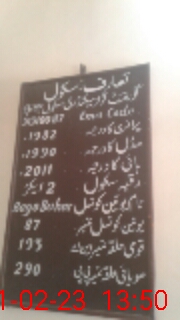 تعارف سکول
گورنمنٹ گرلز پرائمری سکول
Emis Code
پرائمری کا درجہ 1982
مڈل کا درجہ 1990
ہائی کا درجہ 2011
رقبہ سکول 2 ایکڑ
نام یونین کونسل
یونین کونسل نمبر 87
قومی حلقہ نمبر این اے 195
صوبائی حلقہ نمبر پی پی 290
1-02-23 13:50